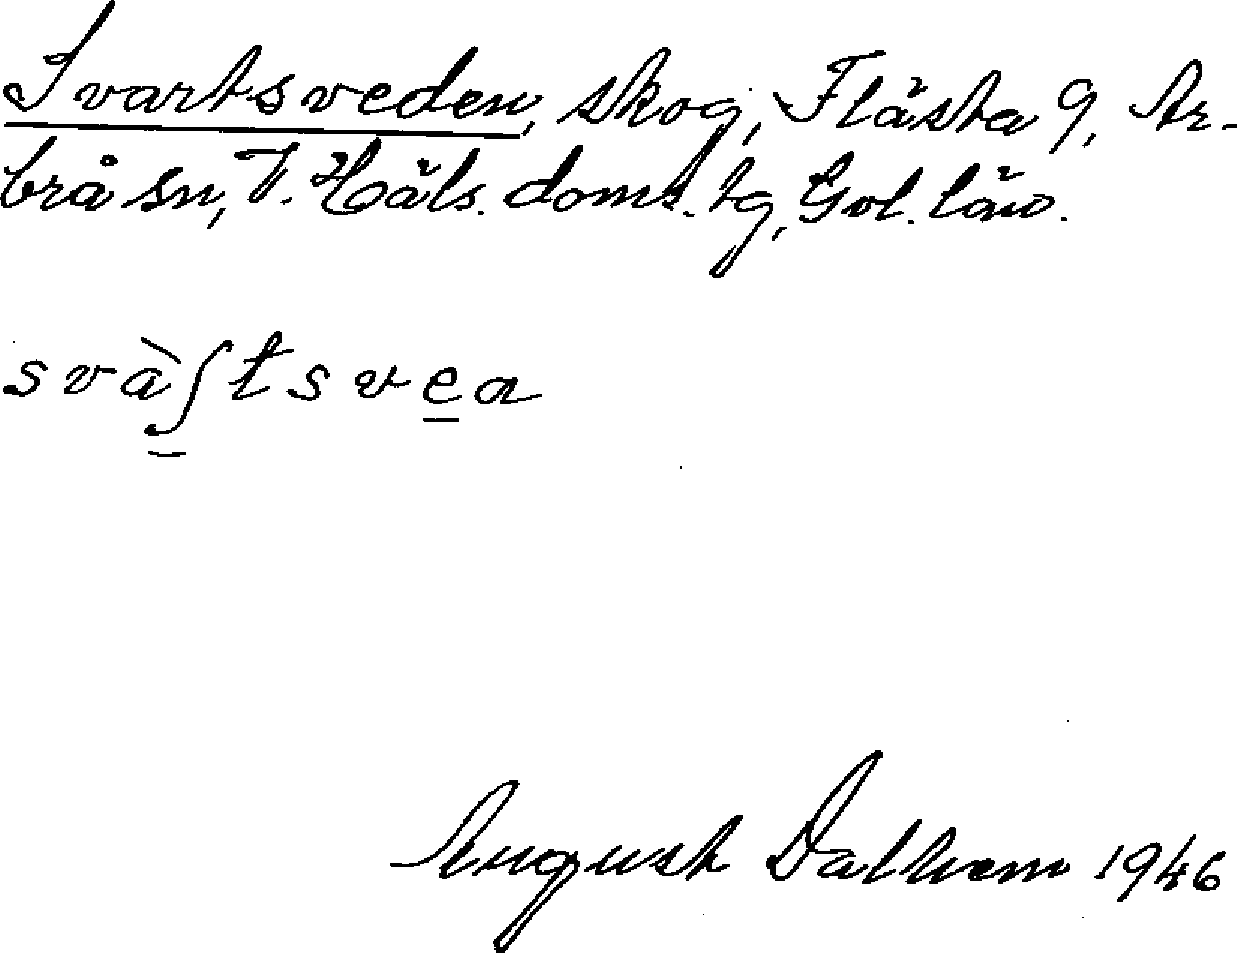 Svartsveden, skog, Flästa 9, Ar-
brå sn, V. Häls. doms. tg, Gvl. län.
svàʃtsvea
August Dalhem 1946